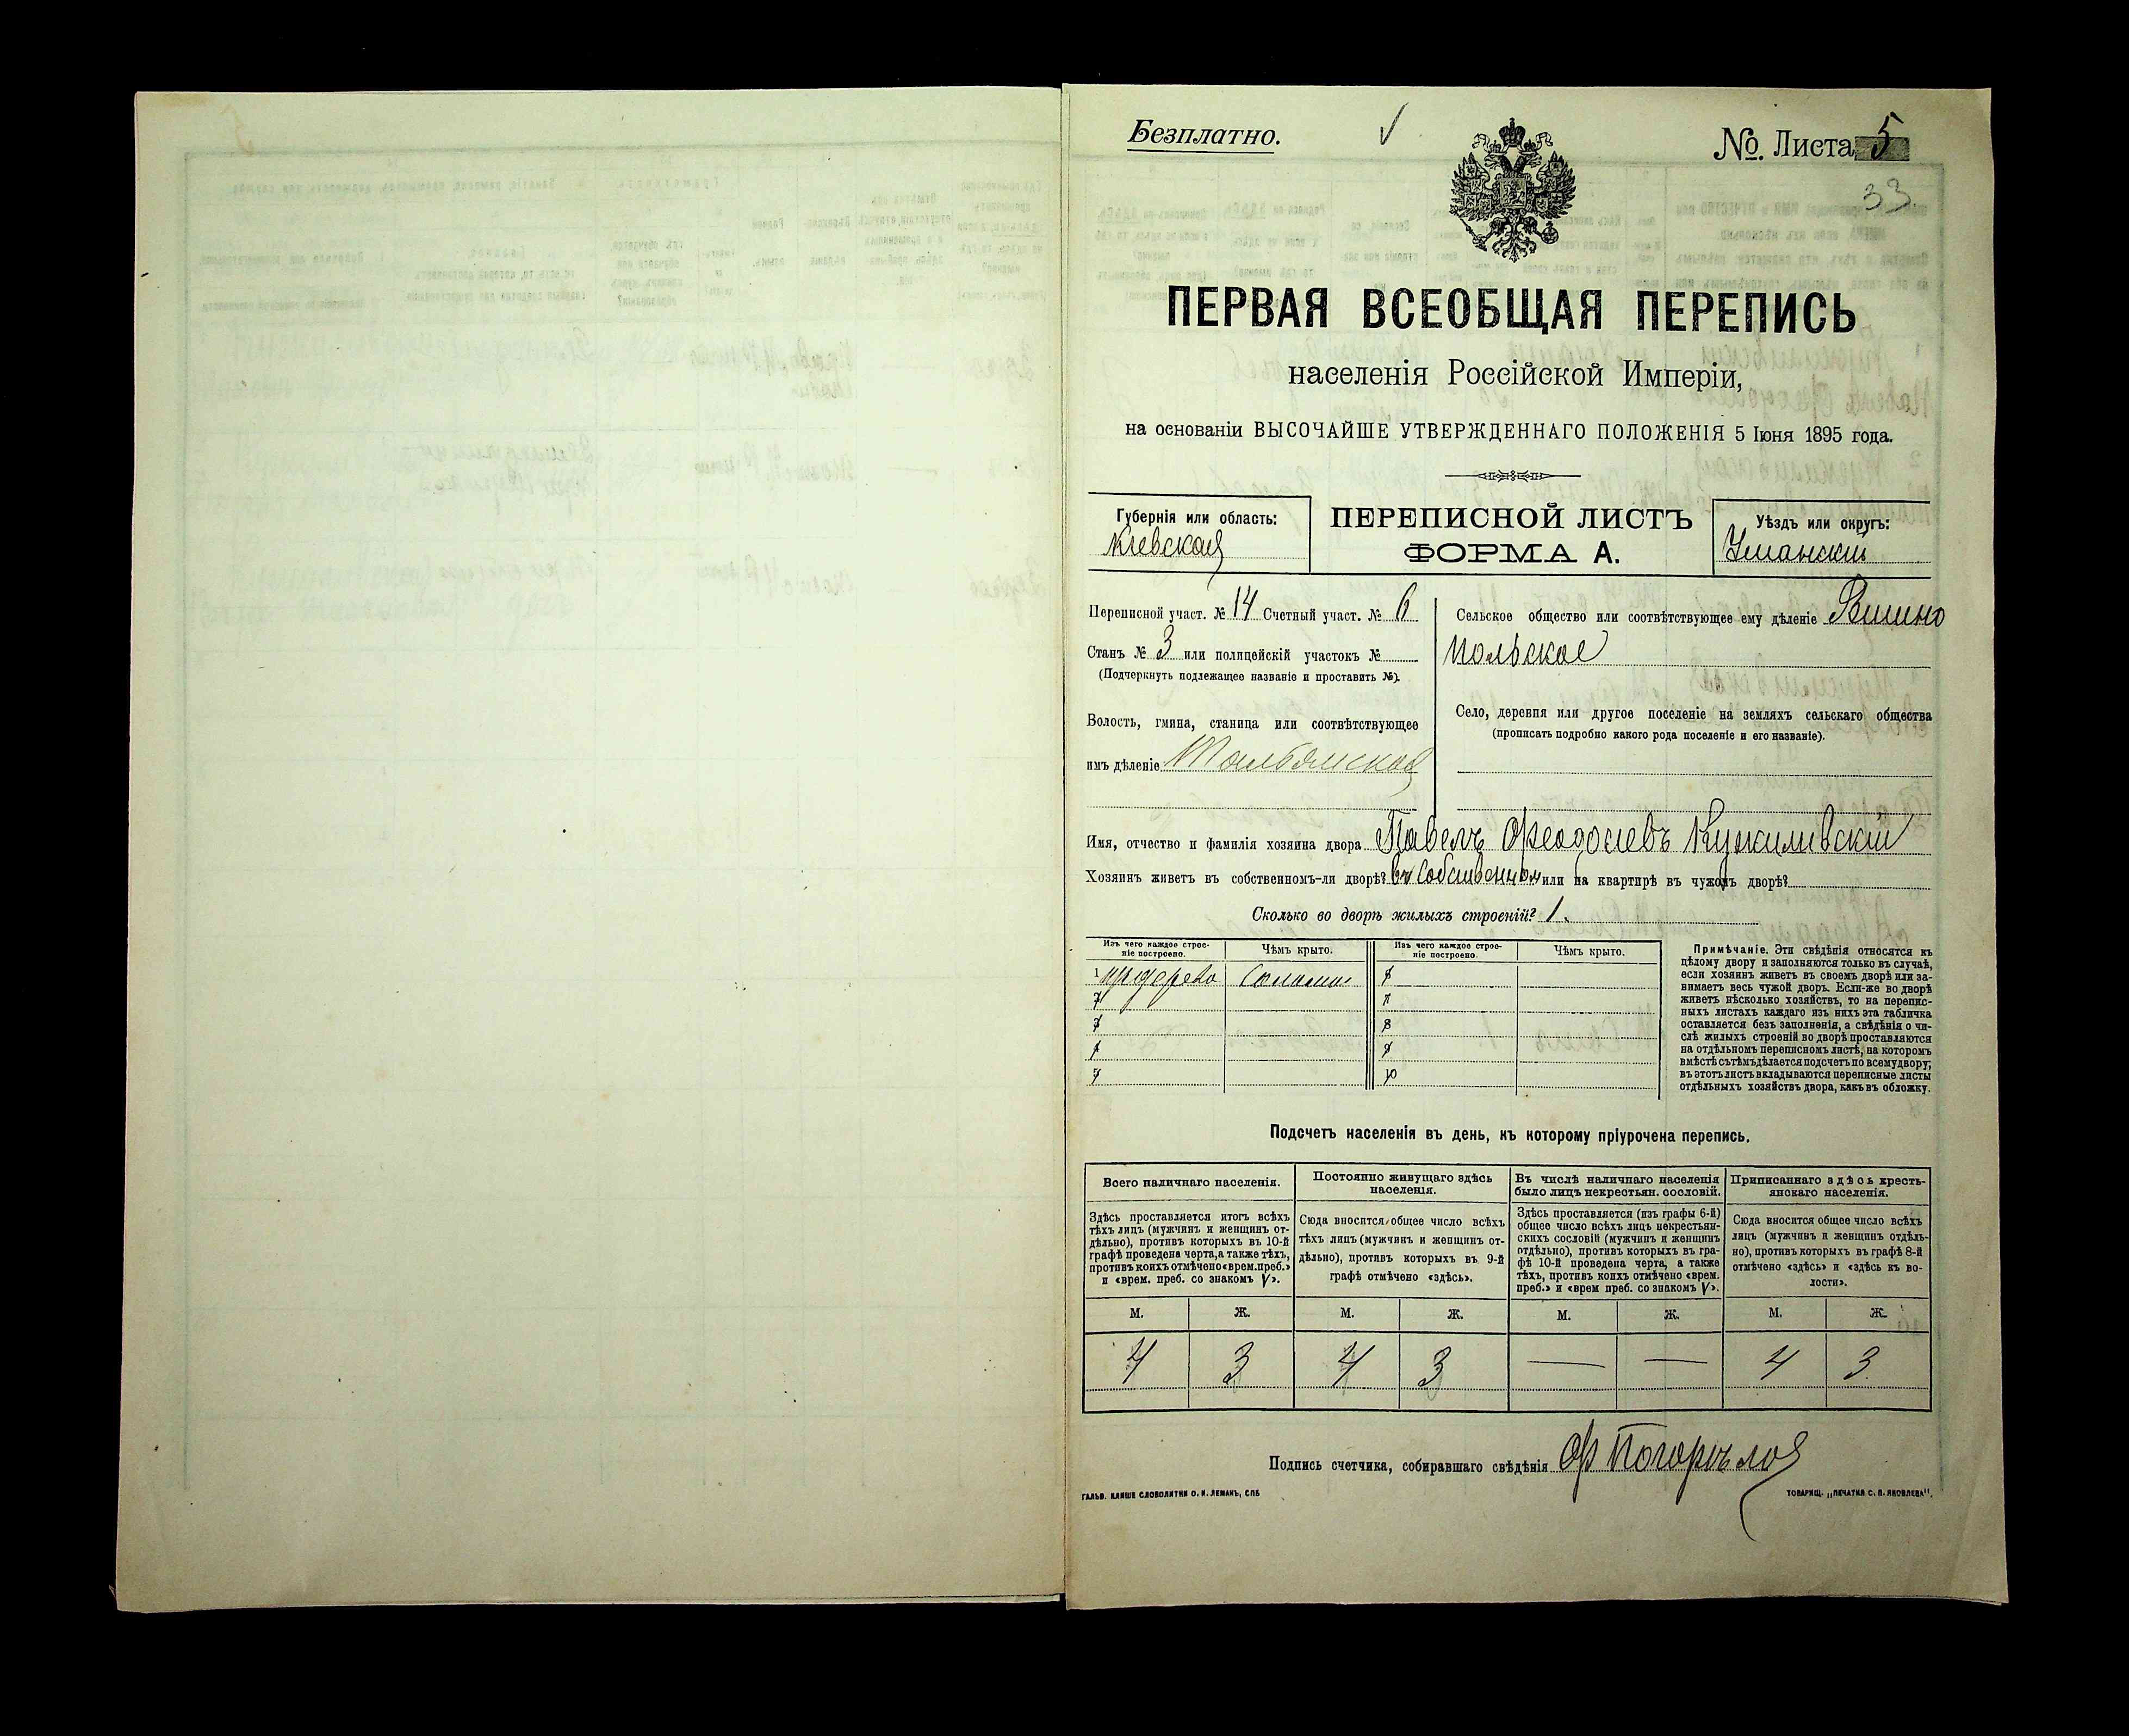 Безплатно.
№ Листа 5
33
ПЕРВАЯ ВСЕОБЩАЯ ПЕРЕПИСЬ
населенія Россійской Имперіи,
на основаніи ВЫСОЧАЙШЕ УТВЕРЖДЕННАГО ПОЛОЖЕНІЯ 5 Іюня 1895 года.
Губернія или область:
Кіевская
ПЕРЕПИСНОЙ ЛИСТЪ
ФОРМА А.
Уѣздъ или округъ:
Уманскій
Переписной участ. № 14 Счетный участ. № 6
Станъ № 3 или полицейскій участокъ №
(Подчеркнуть подлежащее названіе и проставить №).
Волость, гмина, станица или соотвѣтствующее
имъ дѣленіе
Сельское общество или соотвѣтствующее ему дѣленіе Вишно
польское
Село, деревня или другое поселеніе на земляхъ сельскаго общества
(прописать подробно какого рода поселеніе и его названіе).
Имя, отчество и фамилія хозяина двора Павелъ Феодосіевъ Кужиливскій
Хозяинъ живетъ въ собственномъ-ли дворѣ? въ собственномъ или на квартирѣ въ чужомъ дворѣ?
Сколько во дворѣ жилыхъ строеній? 1.
Изъ чего каждое строе-
ніе построено.
Чѣмъ крыто.
Изъ чего каждое строе-
ніе построено.
Чѣмъ крыто.
1 дерева Соломою 6
2 7
3 8
4 9
5 10
Примѣчаніе. Эти свѣдѣнія относятся къ
цѣлому двору и заполняются только въ случаѣ,
если хозяинъ живетъ въ своемъ дворѣ или за-
нимаетъ весь чужой дворъ. Если-же во дворѣ
живетъ нѣсколько хозяйствъ, то на перепис-
ныхъ листахъ каждаго изъ нихъ эта табличка
оставляется безъ заполненія, а свѣдѣнія о чи-
слѣ жилыхъ строеній во дворѣ проставляются
на отдѣльномъ переписномъ листѣ, на которомъ
вмѣстѣ съ тѣмъ дѣлается подсчетъ по всему двору;
въ этотъ листъ вкладываются переписные листы
отдѣльныхъ хозяйствъ двора, какъ въ обложку.
Подсчетъ населенія въ день, къ которому пріурочена перепись.
Всего наличнаго населенія.
Здѣсь проставляется итогъ всѣхъ
тѣхъ лицъ (мужчинъ и женщинъ от-
дѣльно), противъ которыхъ въ 10-й
графѣ проведена черта, а также тѣхъ,
противъ коихъ отмѣчено «врем. преб.»
и «врем. преб. со знакомъ V».
Постоянно живущаго здѣсь
населенія.
Сюда вносится общее число всѣхъ
тѣхъ лицъ (мужчинъ и женщинъ от-
дѣльно), противъ которыхъ въ 9-й
графѣ отмѣчено «здѣсь».
Въ числѣ наличнаго населенія
было лицъ некрестьян. сословій.
Здѣсь проставляется (изъ графы 6-й)
общее число всѣхъ лицъ некрестьян-
скихъ сословій (мужчинъ и женщинъ
отдѣльно), противъ которыхъ въ гра-
фѣ 10-й проведена черта, а также
тѣхъ, противъ коихъ отмѣчено «врем.
преб.» и «врем преб. со знакомъ V».
Приписаннаго здѣсь кресть-
янскаго населенія.
Сюда вносится общее число всѣхъ
лицъ (мужчинъ и женщинъ отдѣль-
но), противъ которыхъ въ графѣ 8-й
отмѣчено «здѣсь» и «здѣсь въ во-
лости».
М. Ж. М. Ж. М. Ж. М. Ж.
4 3 4 3 — — 4 3
Подпись счетчика, собиравшаго свѣдѣнія Ф Погорѣлов
ГАЛЬВ. КЛИШЕ СЛОВОЛИТНИ О. И. ЛЕМАНЪ, СПБ
ТОВАРИЩ. „ПЕЧАТНЯ С. П. ЯКОВЛЕВА".